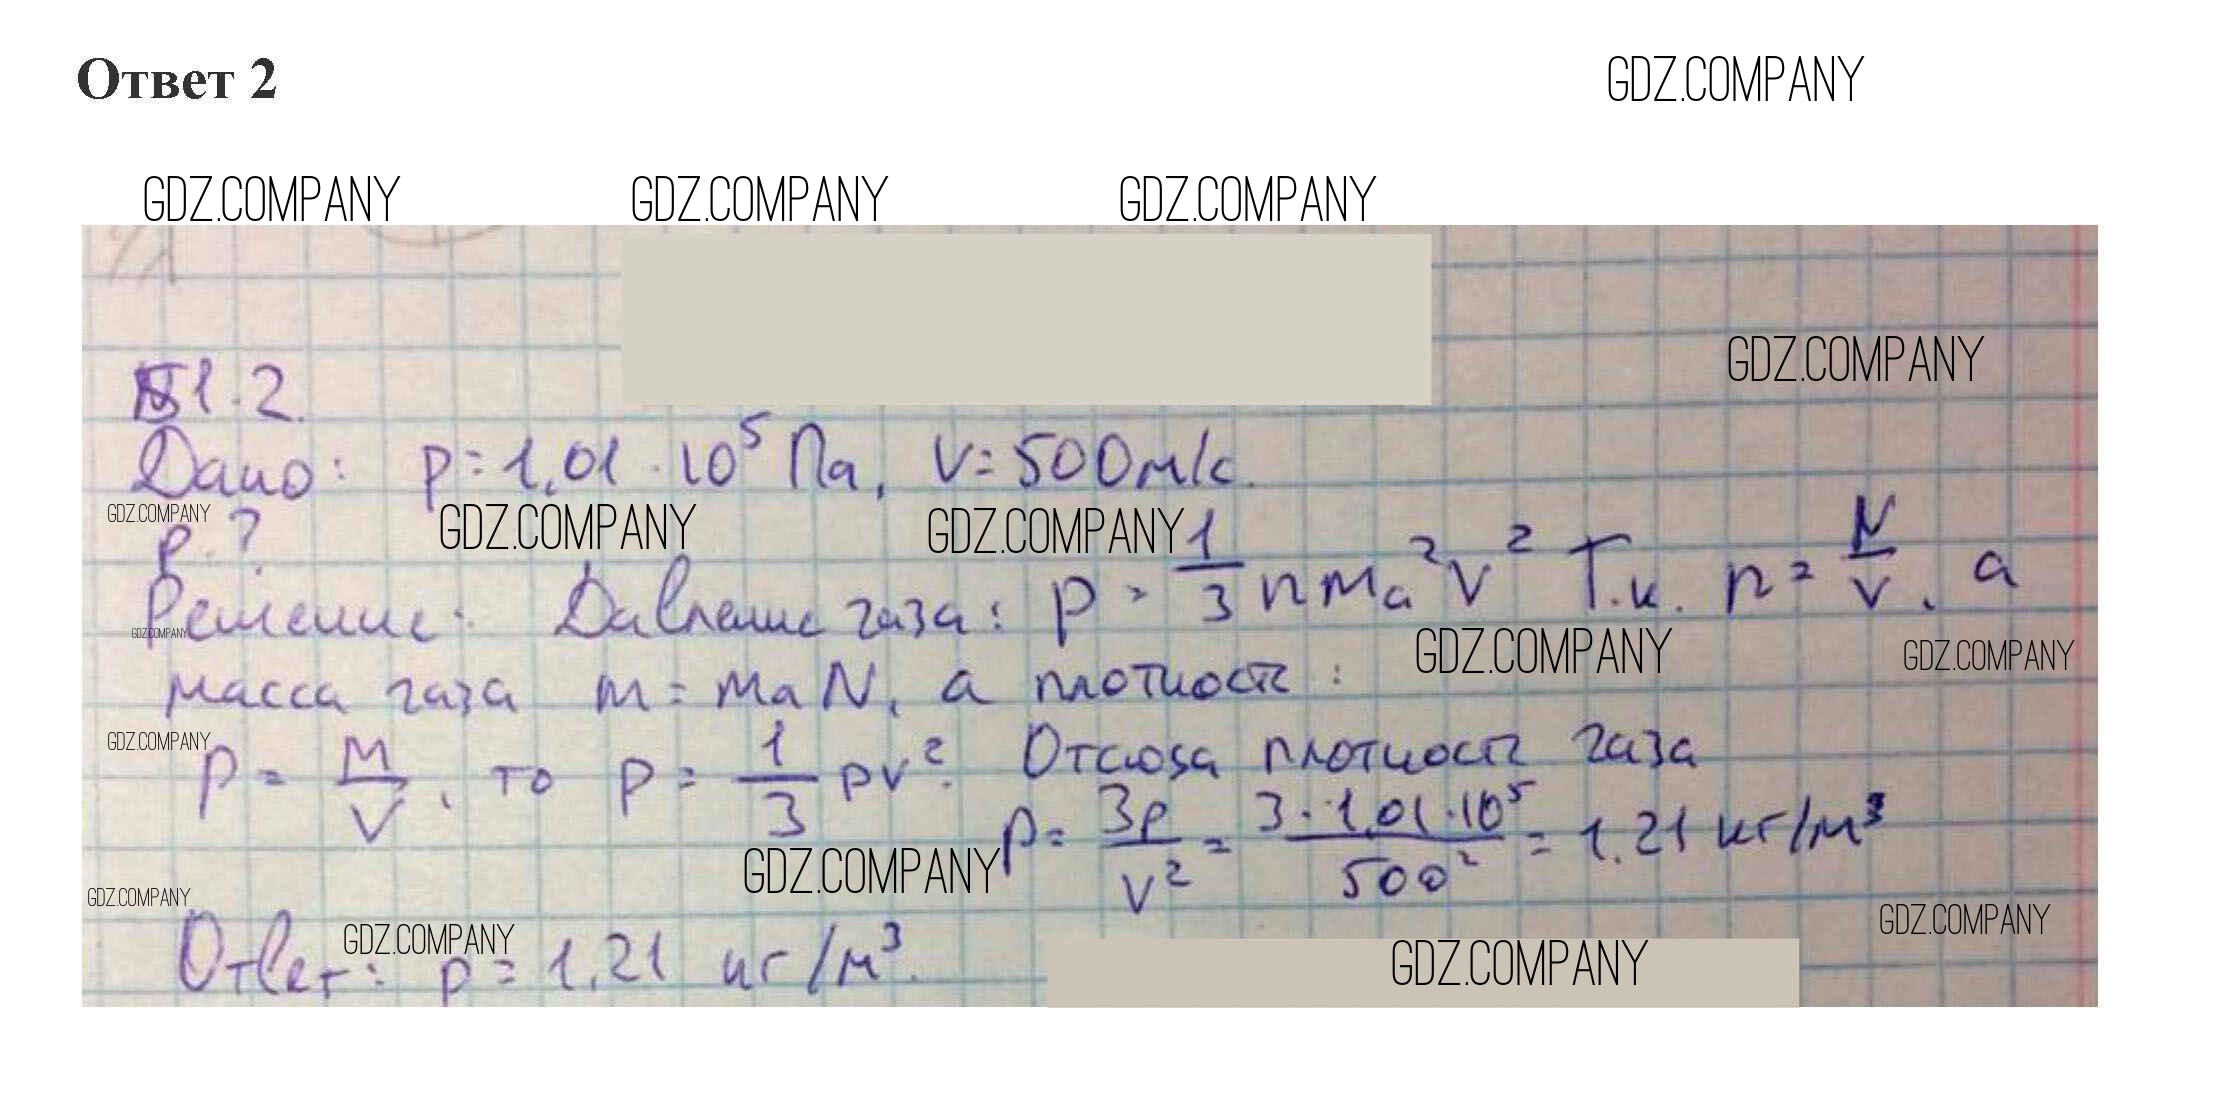 Ответ 2
GDZ.COMPANY
GDZ.COMPANY GDZ.COMPANY GDZ.COMPANY
GDZ.COMPANY
1.2.
Дано: p=1,01·10⁵ Па, v=500м/с.
GDZ.COMPANY GDZ.COMPANY GDZ.COMPANY
ρ-?
Решение: Давление газа: p = 1/3 n ma² v² Т.к. n = N/V, а
GDZ.COMPANY GDZ.COMPANY GDZ.COMPANY
масса газа m = ma N, а плотность:
GDZ.COMPANY
ρ = M/V, то p = 1/3 ρv². Отсюда плотность газа
ρ = 3p/v² = 3·1,01·10⁵/500² = 1.21 кг/м³
GDZ.COMPANY
GDZ.COMPANY GDZ.COMPANY
Ответ: ρ = 1.21 кг/м³.
GDZ.COMPANY GDZ.COMPANY